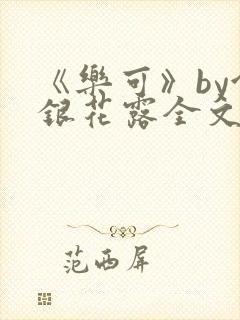 《樂可》by
銀花露全文
范西屏